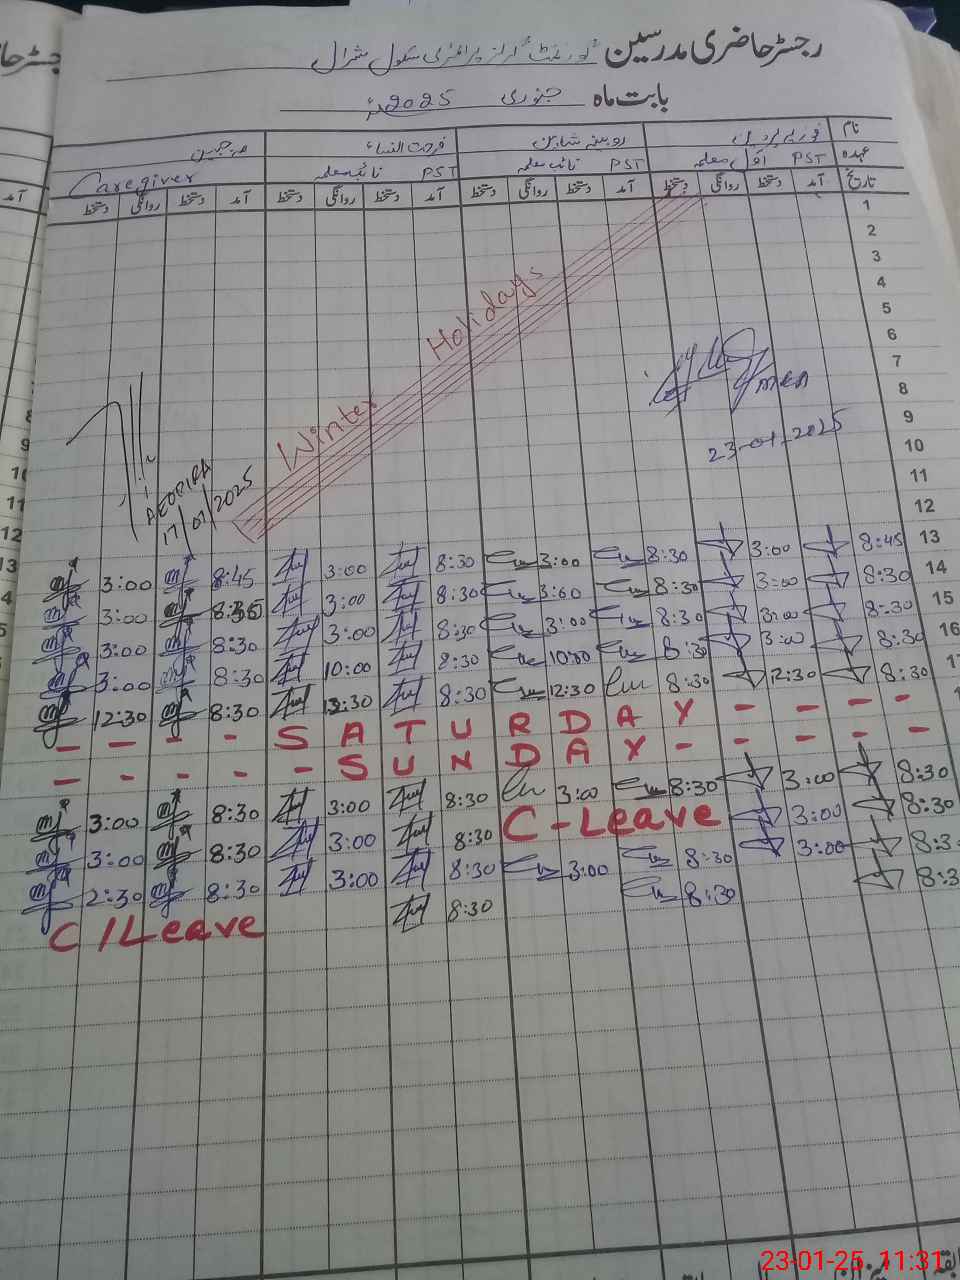 رجسٹر حاضری مدرسین گورنمنٹ گرلز پرائمری سکول
بابت ماہ جنوری 2025ء
نام روبینہ شاہین فرحت النساء مہ جبین
عہدہ PST اول معلمہ PST نائب معلمہ PST نائب معلمہ Caregiver
تاریخ آمد دستخط روانگی دستخط آمد دستخط روانگی دستخط آمد دستخط روانگی دستخط آمد دستخط روانگی دستخط
1
2
3
4
5
6
7
8
9
10
11
12
Winter Holidays
MEA
23-01-2025
17/01/2025
13 8:45 3:00 8:30 3:00 8:30 3:00 8:45 3:00
14 8:30 3:00 8:30 3:00 8:30 3:00 3:00
15 8:30 3:00 8:30 3:00 8:30 3:00 8:30 3:00
16 8:30 3:00 8:30 8:30 10:00 8:30 3:00
17 8:30 12:30 8:30 12:30 8:30 8:30 12:30
- - - - S A T U R D A Y - - - -
- - - - - S U N D A Y - - - - -
8:30 3:00 8:30 3:00 8:30 3:00 8:30 3:00
8:30 3:00 C-Leave 8:30 3:00 8:30 3:00
3:00 8:30 3:00 8:30 3:00 8:30 2:30
8:30 8:30 C/Leave
23-01-25 11:31